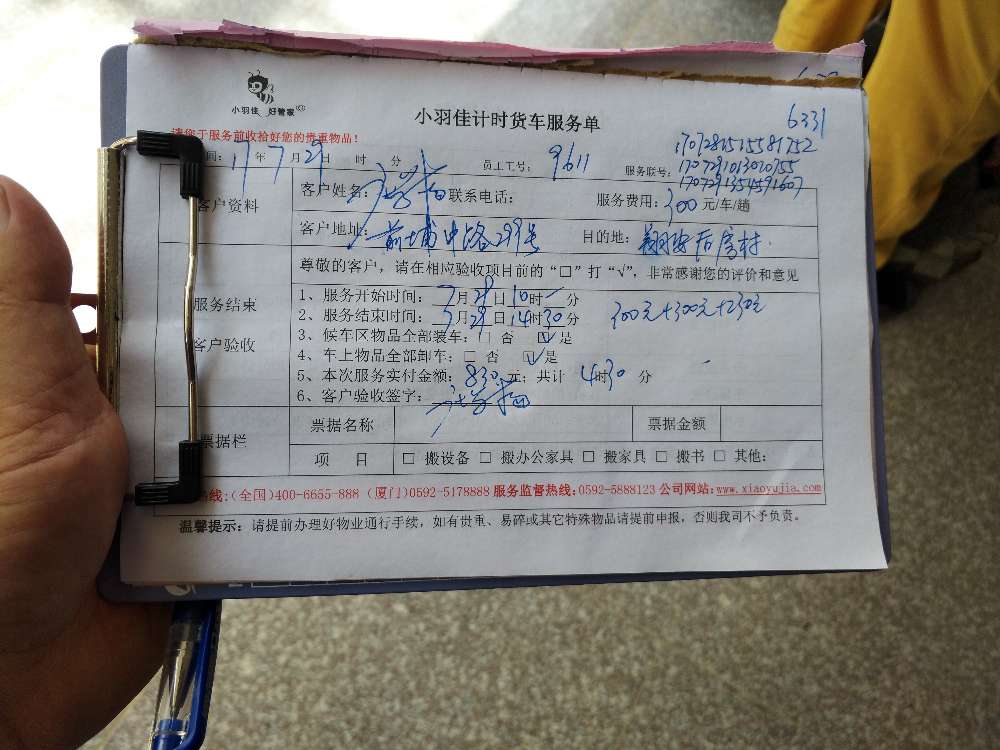 小羽佳 好管家
小羽佳计时货车服务单
6331
请您于服务前收拾好您的贵重物品!
间: 17年 7月 29日 时 分 员工工号: 9611 服务联号: 1707281515581752
1707291013020755
17072913514591607
客户资料 客户姓名: 联系电话: 服务费用: 300 元/车/趟
客户地址: 前埔中路299号 目的地: 翔安后房村
尊敬的客户，请在相应验收项目前的“□”打“√”，非常感谢您的评价和意见
服务结束
客户验收
1、服务开始时间: 7月29日10时 分
2、服务结束时间: 7月29日14时30分 300元+300元+230元
3、候车区物品全部装车: □ 否 ☑ 是
4、车上物品全部卸车: □ 否 ☑ 是
5、本次服务实付金额: 830 元; 共计 4时30 分
6、客户验收签字:
票据栏 票据名称 票据金额
项 目 □ 搬设备 □ 搬办公家具 □ 搬家具 □ 搬书 □ 其他:
热线:(全国)400-6655-888 (厦门)0592-5178888 服务监督热线:0592-5888123 公司网站:www.xiaoyujia.com
温馨提示: 请提前办理好物业通行手续，如有贵重、易碎或其它特殊物品请提前申报，否则我司不予负责。